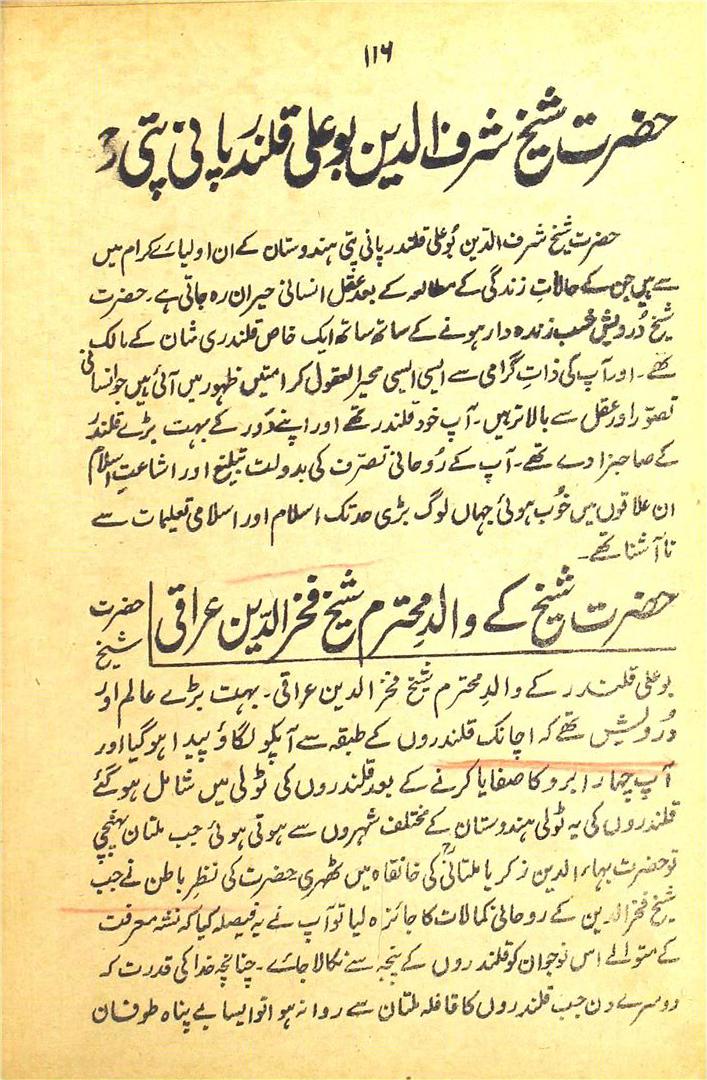 ۱۱۶
حضرت شیخ شرف الدین بو علی قلندر پانی پتیؒ
حضرت شیخ شرف الدّین بُو علی قلندر پانی پتی ہندوستان کے ان اولیائے کرام میں
سے ہیں جن کے حالاتِ زندگی کے مطالعہ کے بعد عقل انسانی حیران رہ جاتی ہے۔ حضرت
شیخ دُرویش شب زندہ دار ہونے کے ساتھ ساتھ ایک خاص قلندری شان کے مالک
تھے۔ اور آپ کی ذاتِ گرامی سے ایسی ایسی محیر العقول کرامتیں ظہور میں آئی ہیں جو انسانی
تصوّر اور عقل سے بالاتر ہیں۔ آپ خود قلندر تھے اور اپنے دَور کے بہت بڑے قلندر
کے صاحبزادے تھے۔ آپ کے رُوحانی تصرّف کی بدولت تبلیغ اور اشاعتِ اسلام
ان علاقوں میں خُوب ہوئی جہاں لوگ بڑی حد تک اسلام اور اسلامی تعلیمات سے
ناآشنا تھے۔
حضرت شیخ کے والدِ محترم شیخ فخر الدّین عراقی
حضرت
شیخ
بو علی قلندر کے والدِ محترم شیخ فخر الدین عراقی۔ بہت بڑے عالم اور
دُرویش تھے کہ اچانک قلندروں کے طبقہ سے آپکو لگاؤ پیدا ہو گیا اور
آپ چہار ابرو کا صفایا کرنے کے بعد قلندروں کی ٹولی میں شامل ہو گئے
قلندروں کی یہ ٹولی ہندوستان کے مختلف شہروں سے ہوتی ہوئی جب ملتان پہنچی
تو حضرت بہاء الدین زکریا ملتانیؒ کی خانقاہ میں ٹھہری حضرت کی نظرِ باطن نے جب
شیخ فخر الدین کے روحانی کمالات کا جائزہ لیا تو آپ نے یہ فیصلہ کیا کہ نشہ معرفت
کے متوالے اس نوجوان کو قلندروں کے پنجہ سے نکالا جائے۔ چنانچہ خدا کی قدرت کہ
دوسرے دن جب قلندروں کا قافلہ ملتان سے روانہ ہوا تو ایسا بے پناہ طوفان